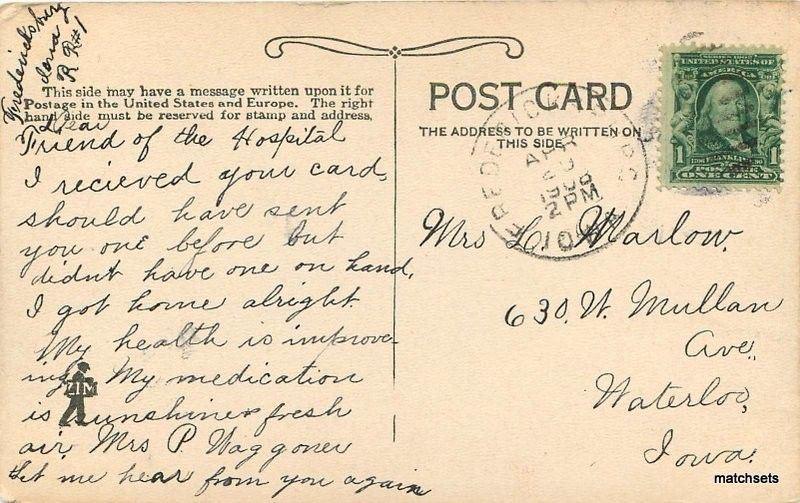 Fredericksburg
Iowa
R R #1
This side may have a message written upon it for
Postage in the United States and Europe. The right
hand side must be reserved for stamp and address.
Dear
Friend of the Hospital
I recieved your card,
should have sent
you one before but
didn't have one on hand,
I got home alright.
My health is improve-
ing My medication
is sunshine & fresh
air, Mrs P. Waggoner
Let me hear from you again
ZIM
POST CARD
THE ADDRESS TO BE WRITTEN ON
THIS SIDE
FREDERICKSBURG
APR
1908
2 PM
IOWA
SERIES 1902
UNITED STATES OF
AMERICA
1 FRANKLIN 1
POSTAGE
ONE CENT
Mrs L. Marlow,
630. W. Mullan
Ave.,
Waterloo,
Iowa.
matchsets